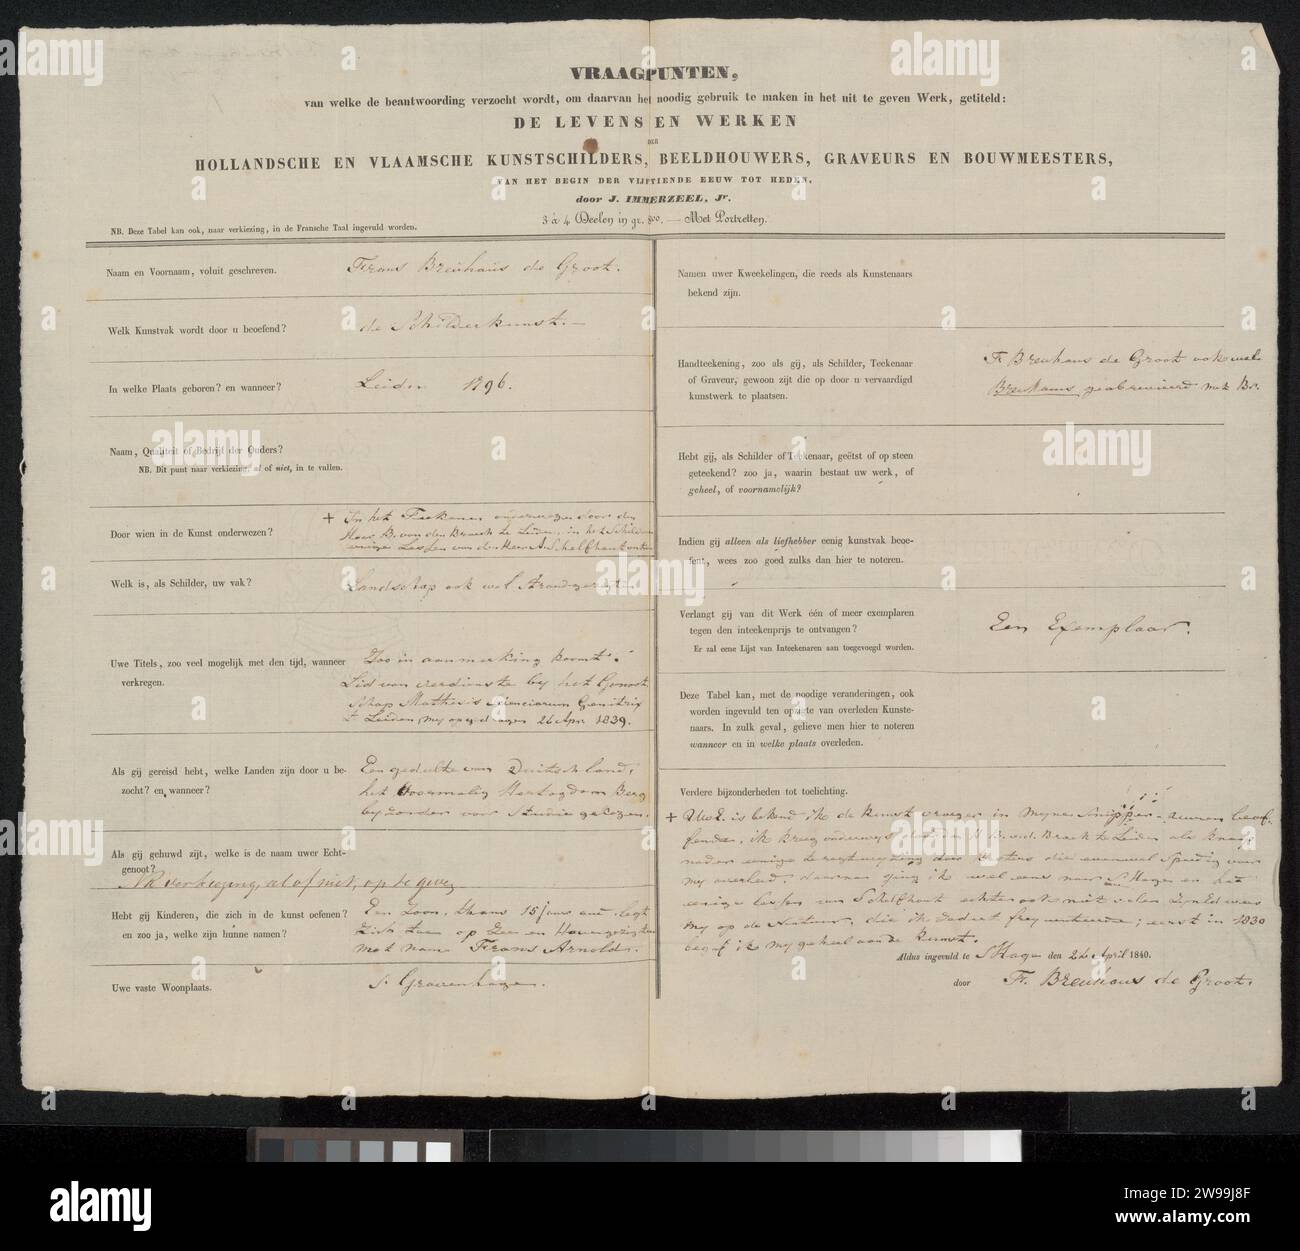 VRAAGPUNTEN,
van welke de beantwoording verzocht wordt, om daarvan het noodig gebruik te maken in het uit te geven Werk, getiteld:
DE LEVENS EN WERKEN
DER
HOLLANDSCHE EN VLAAMSCHE KUNSTSCHILDERS, BEELDHOUWERS, GRAVEURS EN BOUWMEESTERS,
VAN HET BEGIN DER VIJFTIENDE EEUW TOT HEDEN,
door J. IMMERZEEL, Jr.
3 à 4 Deelen in gr. 8vo. — Met Portretten.
NB. Deze Tabel kan ook, naar verkiezing, in de Fransche Taal ingevuld worden.
Naam en Voornaam, voluit geschreven.
Frans Breuhaus de Groot.
Welk Kunstvak wordt door u beoefend?
de Schilderkunst. —
In welke Plaats geboren? en wanneer?
Leiden 1796.
Naam, Qualiteit of Bedrijf der Ouders?
NB. Dit punt naar verkiezing, al of niet, in te vullen.
Door wien in de Kunst onderwezen?
+ In het Teekenen onderwezen door den
Heer B. van den Broek te Leiden, in het Schilderen
eenige Lessen van den Heer A. Schelfhout
Welk is, als Schilder, uw vak?
Landschap ook wel Strandgezigten
Uwe Titels, zoo veel mogelijk met den tijd, wanneer
verkregen.
Zoo in aanmerking komt:
Lid van verdienste by het Genoot
schap Mathesis Scienciarum Genitrix
te Leiden, my opgedragen 26 Apr. 1839.
Als gij gereisd hebt, welke Landen zijn door u be-
zocht? en wanneer?
Een gedeelte van Duitschland,
het Voormalig Hertogdom Berg
byzonder voor Studie gekozen.
Als gij gehuwd zijt, welke is de naam uwer Echt-
genoot?
NB verkiezing, al of niet, op te geven
Hebt gij Kinderen, die zich in de kunst oefenen?
en zoo ja, welke zijn hunne namen?
Een Zoon, thans 15 jaar oud, legt
zich toe op Zee en Havengezigten
met name Frans Arnold.
Uwe vaste Woonplaats.
's Gravenhage.
Namen uwer Kweekelingen, die reeds als Kunstenaars
bekend zijn.
Handteekening, zoo als gij, als Schilder, Teekenaar
of Graveur, gewoon zijt die op door u vervaardigd
kunstwerk te plaatsen.
F. Breuhaus de Groot ook wel
Breuhaus geabrevieerd met Br.
Hebt gij, als Schilder of Teekenaar, geëtst of op steen
geteekend? zoo ja, waarin bestaat uw werk, of
geheel, of voornamelijk?
Indien gij alleen als liefhebber eenig kunstvak beoe-
fent, wees zoo goed zulks dan hier te noteren.
Verlangt gij van dit Werk één of meer exemplaren
tegen den inteekenprijs te ontvangen?
Er zal eene Lijst van Inteekenaren aan toegevoegd worden.
Een Exemplaar.
Deze Tabel kan, met de noodige veranderingen, ook
worden ingevuld ten opzigte van overleden Kunste-
naars. In zulk geval, gelieve men hier te noteren
wanneer en in welke plaats overleden.
Verdere bijzonderheden tot toelichting.
+ is bekend ik de kunst vroeger in myne Snipper-uuren beoef-
fende, ik kreeg onderwys door den H. B. v. d. Broek te Leiden als knaap
nader eenige teregtwyzing door die evenwel Spoedig voor
my overleed, daarna ging ik wel eens naar s'Hage en het
eenige lessen van Schelfhout echter ook niet velen
my op de Natuur, die ik dadelt frequenteerde; eerst in 1830
begaf ik my geheel aan de kunst.
Aldus ingevuld te s'Hage den 24 April 1840.
door F. Breuhaus de Groot.
alamy
Image ID: 2W99J8F
www.alamy.com